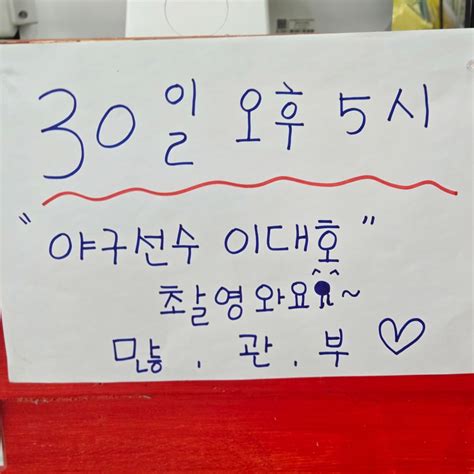 30일 오후 5시
"야구선수 이대호"
촬영와요^^~
많.관.부♡